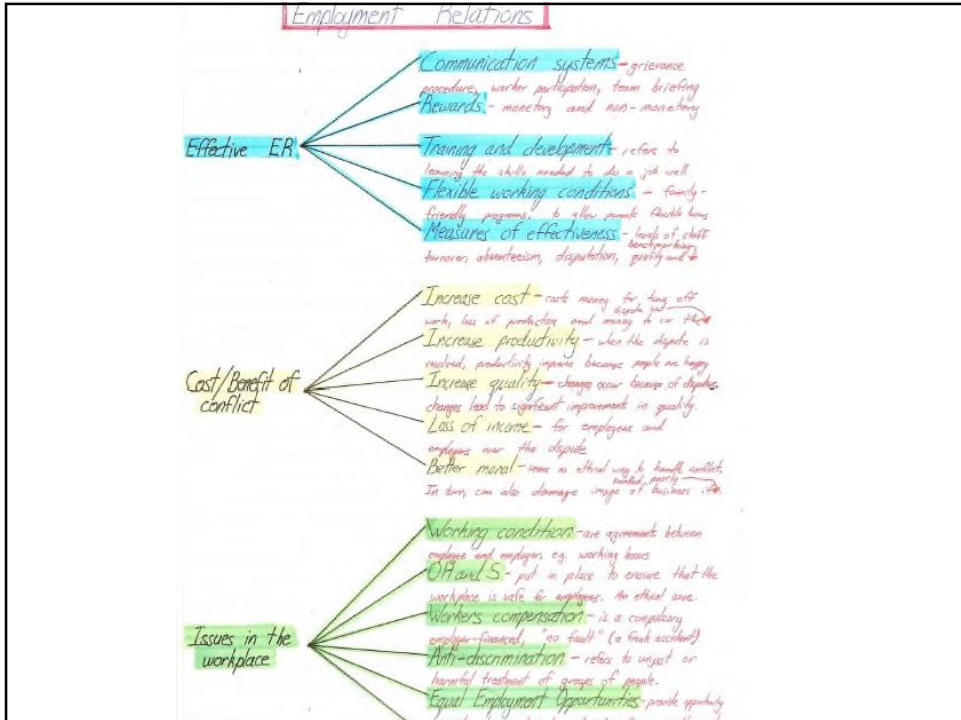 Employment Relations
Communication systems - grievance
procedure, worker participation, team briefing
Rewards - monetary and non-monetary
Effective ER
Training and development - refers to
learning the skills needed to do a job well
Flexible working conditions - family-
friendly programs. to allow parents flexible hours
Measures of effectiveness - levels of staff
benchmarking
turnover, absenteeism, disputation, quality and
Increase cost - costs money for time off
dispute
work, loss of production and money to
Increase productivity - when the dispute is
resolved, productivity improves because people are happy
Cost/Benefit of
conflict
Increase quality - changes occur because of disputes,
changes lead to significant improvements in quality.
Loss of income - for employees and
employers over the dispute
Better moral - ethical way to handle conflict.
handled poorly
In turn, can also damage image of business if
Working condition - are agreements between
employee and employer. e.g. working hours
OH and S - put in place to ensure that the
workplace is safe for employees. An ethical
Workers compensation - is a compulsory
employer-financed, "no fault" (a freak accident)
Issues in the
workplace
Anti-discrimination - refers to unjust or
harmful treatment of groups of people.
Equal Employment Opportunities - provide opportunity